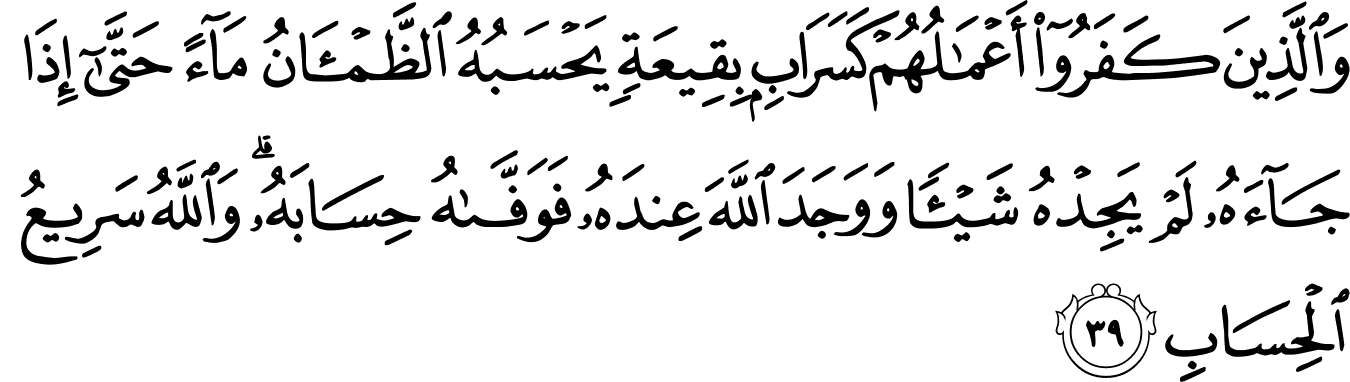 وَٱلَّذِينَ كَفَرُوٓا۟ أَعْمَـٰلُهُمْ كَسَرَابٍۭ بِقِيعَةٍ يَحْسَبُهُ ٱلظَّمْـَٔانُ مَآءً حَتَّىٰٓ إِذَا
جَآءَهُۥ لَمْ يَجِدْهُ شَيْـًٔا وَوَجَدَ ٱللَّهَ عِندَهُۥ فَوَفَّىٰهُ حِسَابَهُۥ ۗ وَٱللَّهُ سَرِيعُ
ٱلْحِسَابِ ٣٩